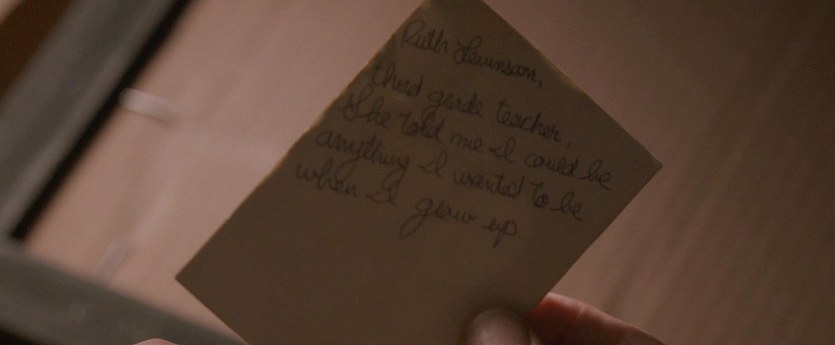 Ruth Levinson,
third grade teacher.
She told me I could be
anything I wanted to be
when I grow up